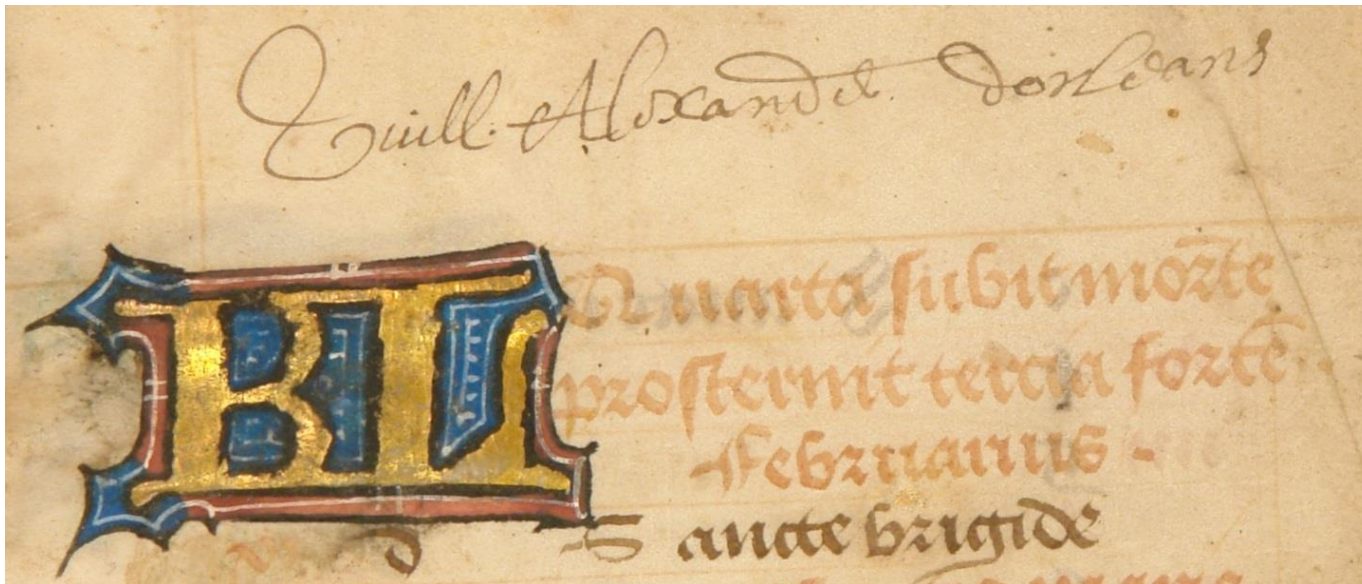 Guill. Alexandre dorleans
KL Quarta subit mortē
prosternit tercia fortē
Februarius .
d Sancte brigide